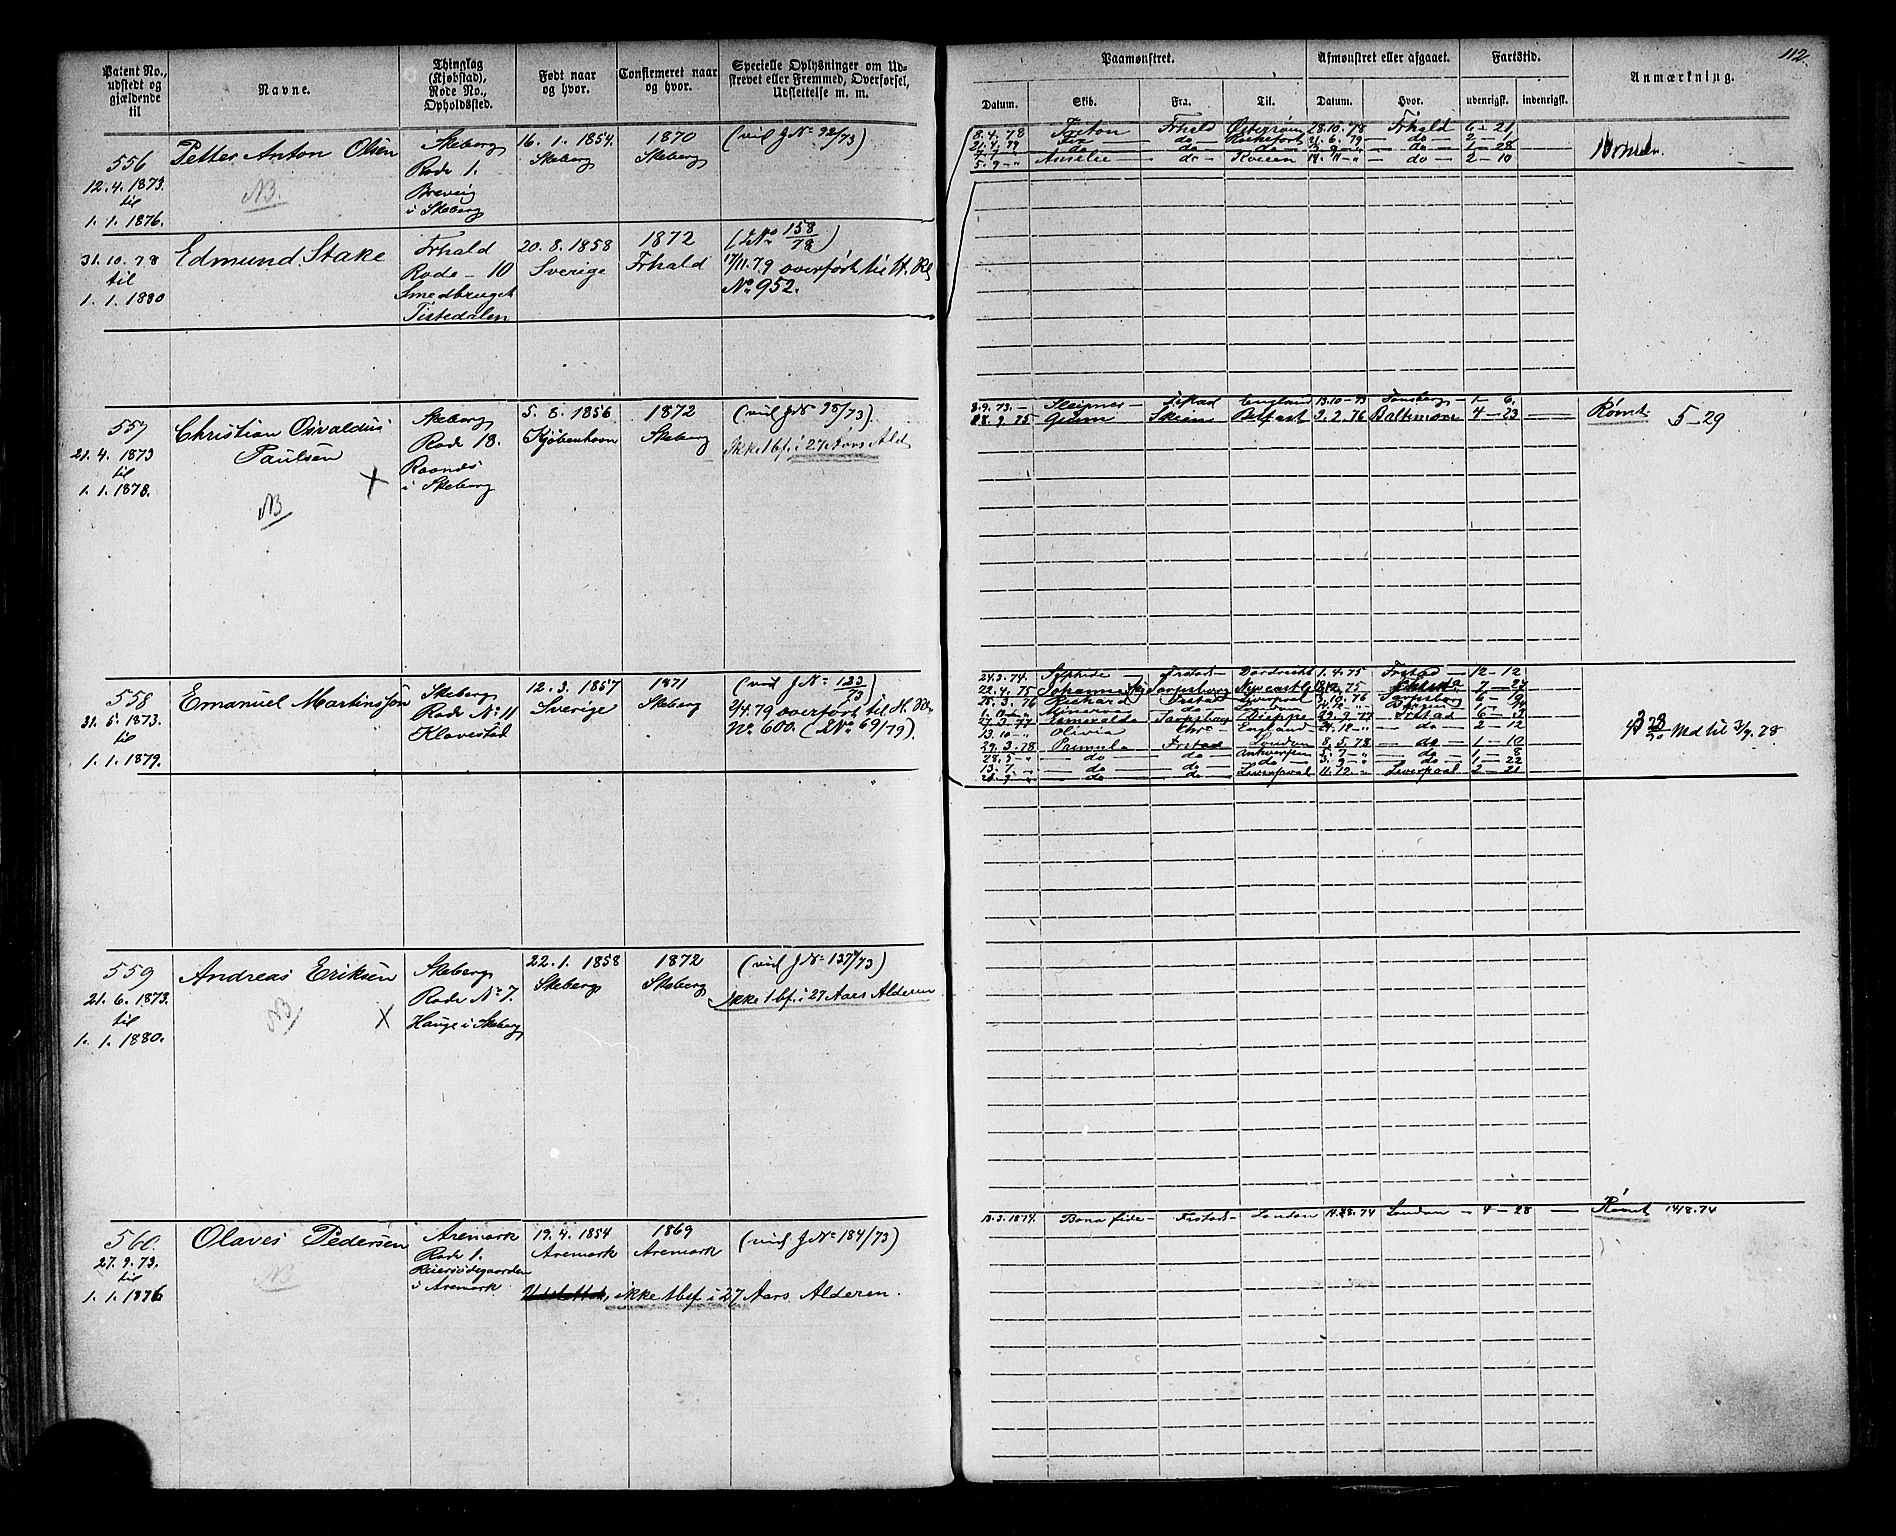 112.
Patent No., udstedt og gjældende til
Navne.
Thinglag (Kjøbstad), Rode No., Opholdssted.
Født naar og hvor.
Confirmeret naar og hvor.
Specielle Oplysninger om Udskrevet eller Fremmed, Overførsel, Udslettelse m. m.
Paamønstret.
Afmønstret eller afgaaet.
Fartstid.
Anmærkning.
Datum.
Skib.
Fra.
Til.
Datum.
Hvor.
udenrigsk.
indenrigsk.
556
12.4.1873.
til
1.1.1876.
Petter Anton Olsen
NB.
Skeberg
Rode 1.
Brevig
i Skeberg
16.1.1854.
Skeberg
1870
Skeberg
(vid J No 92/73)
8.4.78 Freton Frhald 28.10.78 Frhald 6-21
21.4.79 do Rochefort 21.6.79 do 2-1
do do 1-28
5.9-" Amelie do do 2-10
31.10.78
til
1.1.1880
Edmund Stake
Frhald
Rode - 10
Smedbruget
Tistedalen
20.8.1858
Sverige
1872
Frhald
(No 158/78)
17/11.79 overført til H. Rl
No 952.
557
21.4.1873
til
1.1.1878.
Christian Osvaldus
Paulsen
X
NB
Skeberg
Rode 13.
Raanås
i Skeberg
5.8.1856
Kjøbenhavn
1872
Skeberg
(vid J No 98/73).
Ikke 1 bf. i 27de Aars Ald
8.9.73. Sleipner Frstad England 13.10-73 Tønsberg 1-6.
28.9.75 Skien Belfast 9.2.76 Baltimore 4-23
Rømt
5-29
558
31.5.1873.
til
1.1.1879.
Emanuel Martinssøn
Skeberg
Rode No 11
Klavestad
12.3.1857
Sverige
1871
Skeberg
(vid J No 123/73)
2/4.79 overført til H. Rl
No 600. (No 69/79).
24.3.74. Frstad Dordrecht 1.4.75 Frstad 12-12
22.4.75 Johannes Sarpsborg Newcastle
25.3.76 Richard Frstad London Sarpsborg
Minerva do
27.3.77 Esmeralda Sarpsborg Dieppe 29.9.77 Frstad
13.10-" Olivia Chra England do 2-12
29.3.78 Primula Frstad London 8.5.78 do 1-10
28.5-" do do Antwerpen 5.7-" do 1-8
13.7 do do do 3.9-" do 1-22
do do Liverpool 11.12-" Liverpool 2-21
Med til 3/9.78
559
21.6.1873.
til
1.1.1880.
Andreas Eriksen
NB
X
Skeberg
Rode No 7.
Hauge i Skeberg
22.1.1858
Skeberg
1872
Skeberg
(vid J No 137/73)
Ikke 1 bf. i 27 Aars Alderen
560
27.9.73.
til
1.1.1876
Olaves Pedersen
NB
Aremark
Rode 1.
i Aremark
19.4.1854
Aremark
1869
Aremark
(vid J No 184/73)
ikke 1 bef. i 27 Aars Alderen.
18.3.1874. Bona fide Frstad London London 4-28
Rømt 14/8.74